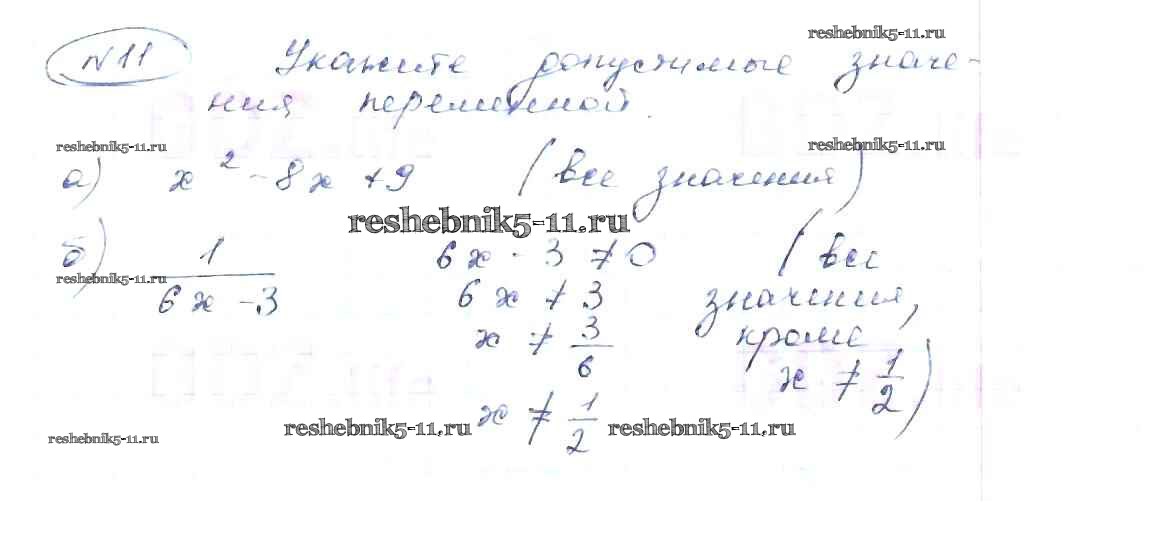 reshebnik5-11.ru
N 11 Укажите допустимые значе-
ния переменной.
reshebnik5-11.ru reshebnik5-11.ru
а) x² - 8x + 9 (все значения)
reshebnik5-11.ru
б) 1/(6x - 3) 6x - 3 ≠ 0 (все
reshebnik5-11.ru
6x ≠ 3 значения,
x ≠ 3/6 кроме
x ≠ 1/2)
x ≠ 1/2
reshebnik5-11.ru reshebnik5-11.ru reshebnik5-11.ru